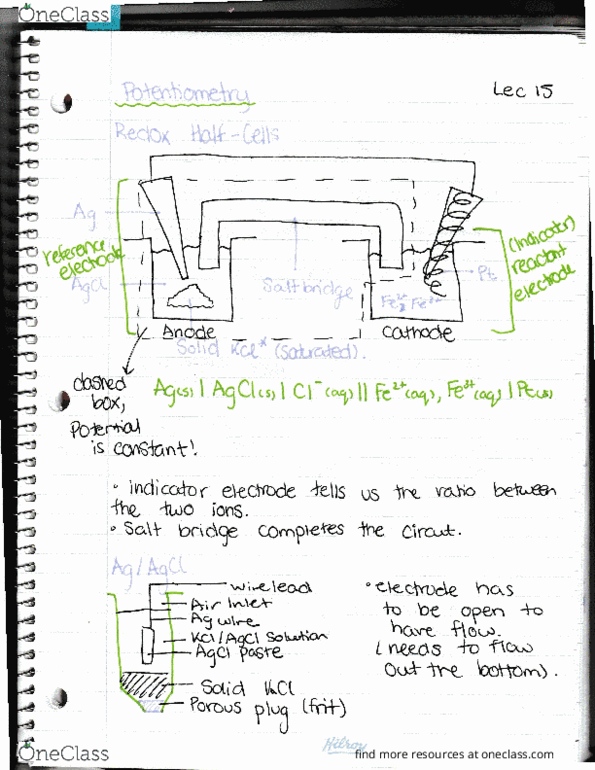 OneClass
Potentiometry
Lec 15
Redox Half-Cells
Ag
reference
electrode
AgCl
Salt bridge
(indicator)
reactant
electrode
Pt
Fe²⁺, Fe³⁺
Anode
Cathode
Solid KCl* (saturated).
dashed
box,
potential
is constant!
Ag(s) | AgCl(s) | Cl⁻(aq) || Fe²⁺(aq), Fe³⁺(aq) | Pt(s)
• indicator electrode tells us the ratio between
the two ions.
• Salt bridge completes the circut.
Ag/AgCl
wire lead
Air Inlet
Ag wire
KCl/AgCl Solution
AgCl paste
Solid KCl
Porous plug (frit)
• electrode has
to be open to
have flow.
(needs to flow
out the bottom).
Hilroy
OneClass
find more resources at oneclass.com